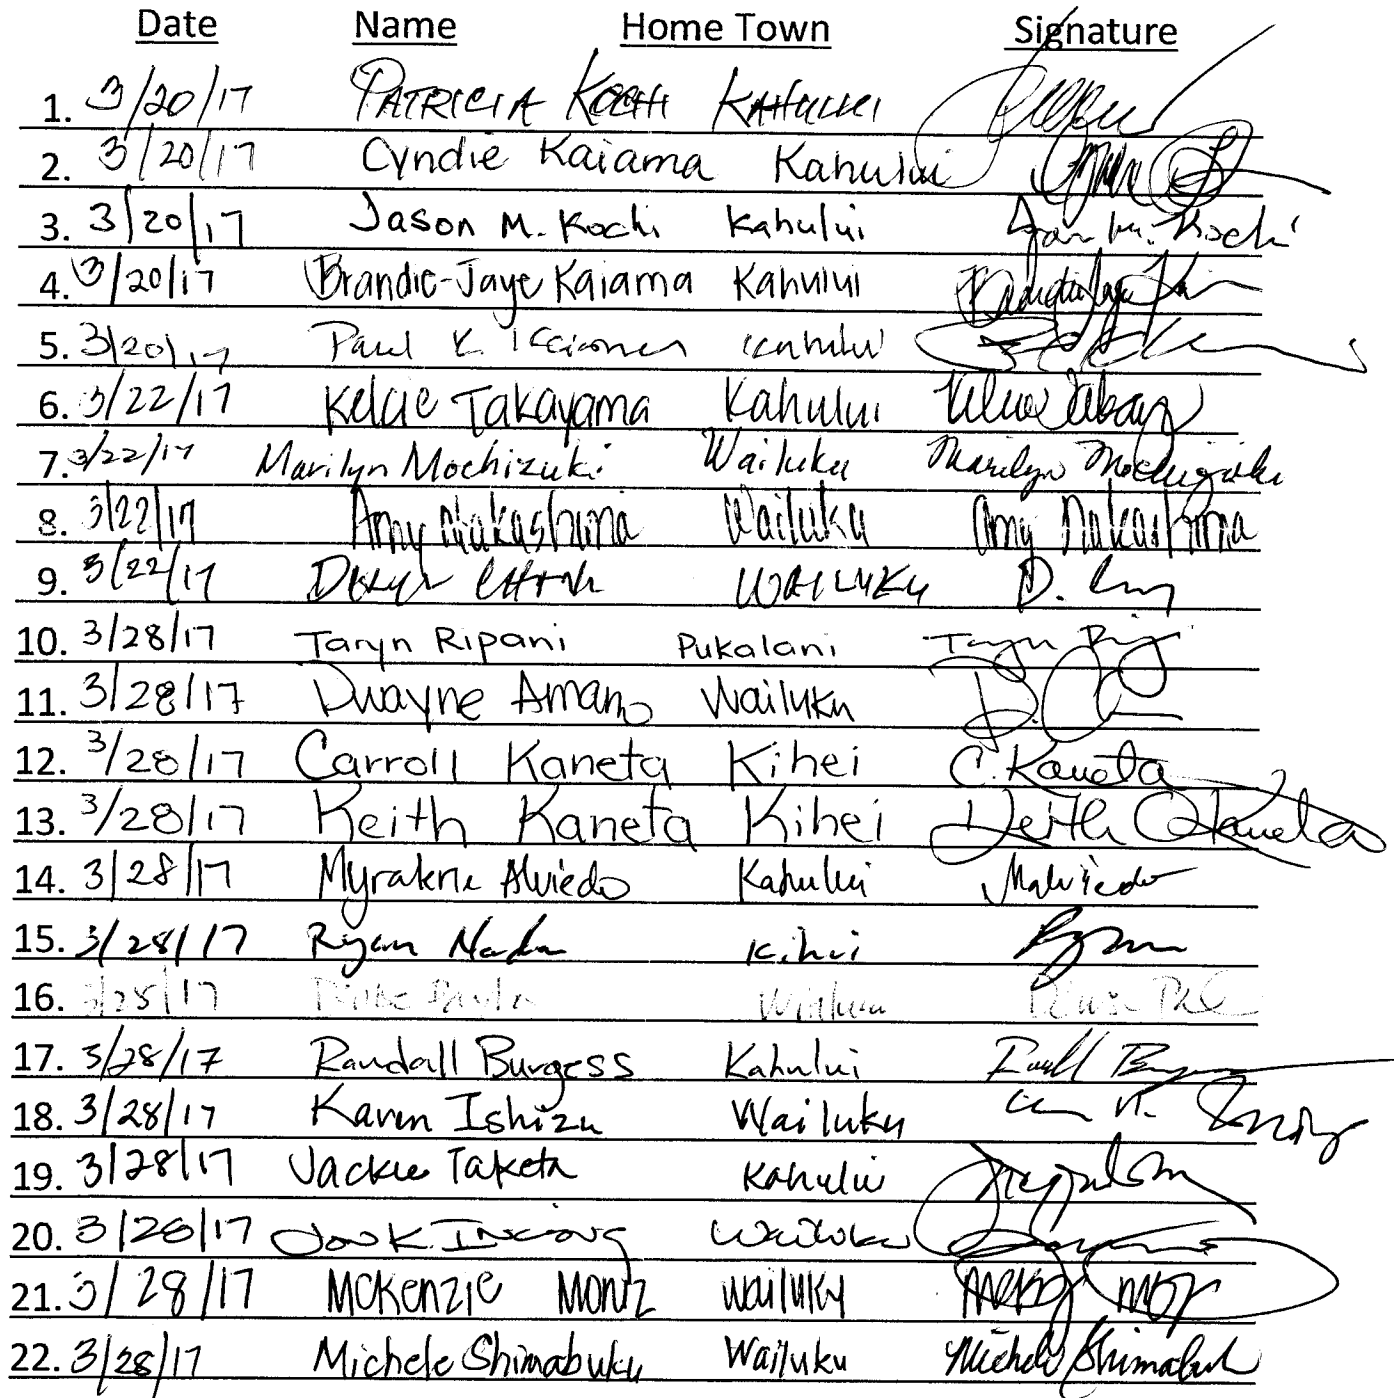 Date Name Home Town Signature
1. 3/20/17 PATRICIA KOCHI KAHULUI
2. 3/20/17 Cyndie Kaiama Kahului
3. 3/20/17 Jason M. Kochi Kahului Jason M. Kochi
4. 3/20/17 Brandie-Jaye Kaiama Kahului
5. 3/20/17 Paul K. Kahului
6. 3/22/17 Kelcie Takayama Kahului
7. 3/22/17 Marilyn Mochizuki Wailuku Marilyn Mochizuki
8. 3/22/17 Amy Nakashima Wailuku Amy Nakashima
9. 3/22/17 WAILUKU D.
10. 3/28/17 Taryn Ripani Pukalani Taryn
11. 3/28/17 Dwayne Amano Wailuku
12. 3/28/17 Carroll Kaneta Kihei C. Kaneta
13. 3/28/17 Keith Kaneta Kihei Keith Kaneta
14. 3/28/17 Alviedo Kahului Malviedo
15. 3/28/17 Ryan Kihei
16. 3/28/17
17. 3/28/17 Randall Burgess Kahului
18. 3/28/17 Karen Ishizu Wailuku
19. 3/28/17 Jackie Taketa Kahului
20. 3/28/17 Wailuku
21. 3/28/17 McKenzie Moniz Wailuku
22. 3/28/17 Michele Shimabuku Wailuku Michele Shimabuku